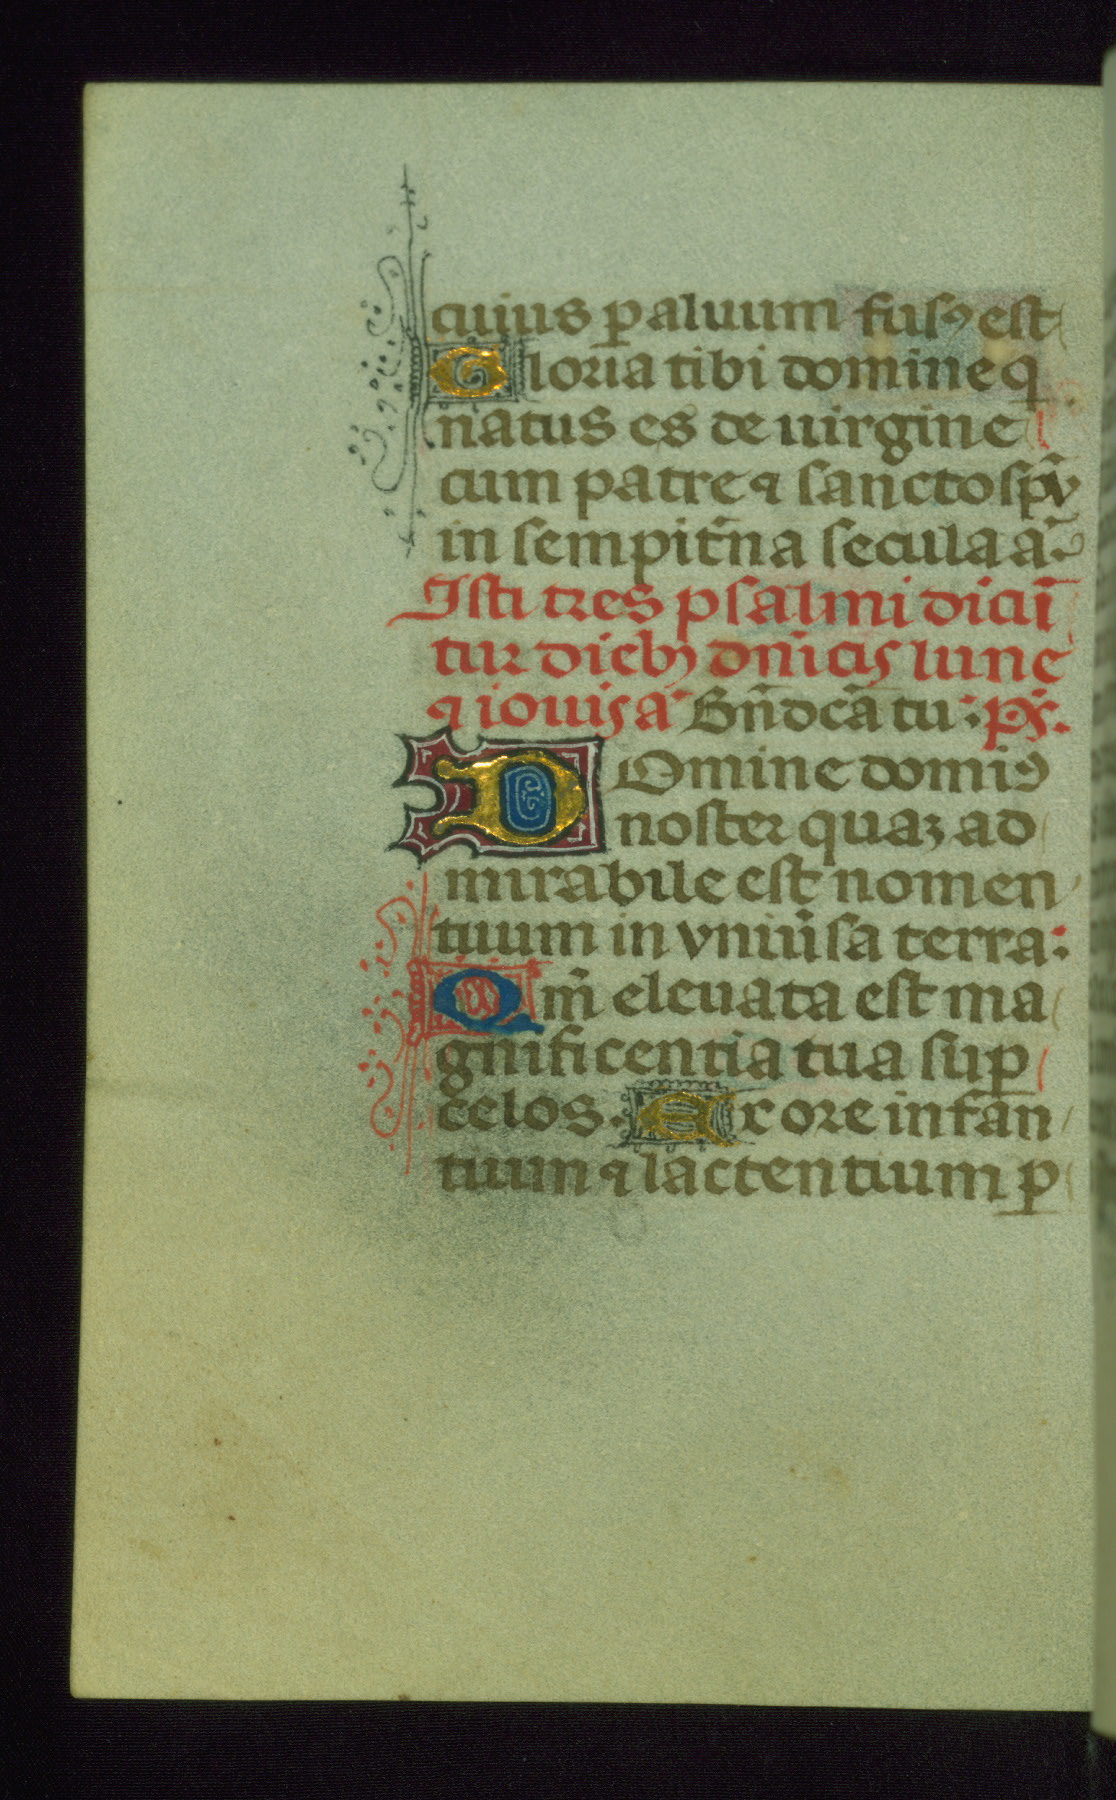 cuius p̲ aluum fusꝰ est
Gloria tibi domine q̲
natus es de uirgine
cum patre ⁊ sancto sp̄u
in sempit̄na secula a᷑
Isti tres psalmi dicūt
tur diebꝫ dn̄icis lune
⁊ iouis a᷑ Bn̄dcā tu · ps̄.
Domine domiꝰ
noster quaꝫ ad
mirabile est nomen
tuum in vniūsa terra:
Qm̄ eleuata est ma
gnificentia tua sup̲
celos. Ex ore infan
tium ⁊ lactentium p̲